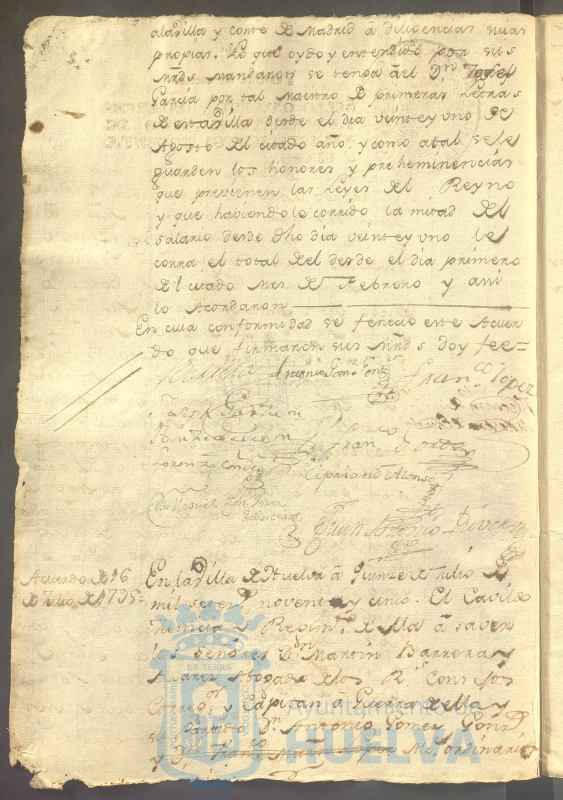 alavilla y corte de Madrid â diligencias suas
propias. Lo que oydo y entendido por sus
Mrds. mandaron se tenga âel Dn. Josef
Garcia por tal Maestro de primeras Letras
de esta villa desde el dia veinte y uno de
Agosto del citado año, y como atal sele
guarden los honores y preheminencias
que previenen las Leyes del Reyno
y que haviendole corrido la mitad del
salario desde dho dia veinte y uno le
corra el total del desde el dia primero
del citado Mes de Febrero y assi
lo Acordaron
En cuia conformidad se feneció este Acuer
do que firmaron sus Mrds. doy fee=
Antonio Gom. Gonz. Franco. Lopez
Lorenzo Cipriano Alonso
Dn. Miguel
Quintero
Juan Antonio Rivera
Acuerdo de 16
de Julio de 1795=
En la villa de Huelva â Quinze de Julio de
mil seteno. noventa y cinco. El Cavildo
Justicia y Regimto. de ella â saver
los Señores Dn. Martin Barrera y
Alvarez Abogado delos Rs. Consejos
Corregor. y Capitan â Guerra de ella y
su Partido Dn. Antonio Gomez Gonz.
y Dn. Franco. Mrn. Lopez Mo. ordinario
ET TERRA
Ayuntamiento de
HUELVA